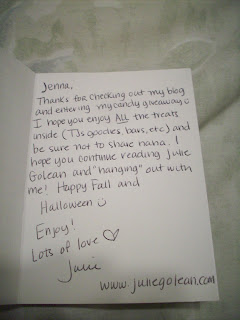 Jenna,
Thanks for checking out my blog
and entering my candy giveaway☺
I hope you enjoy ALL the treats
inside (TJs goodies, bars, etc) and
be sure not to share haha. I
hope you continue reading Julie
GoLean and "hanging" out with
me! Happy Fall and
Halloween ☺
Enjoy!
Lots of love ♡
Julie
www.juliegolean.com